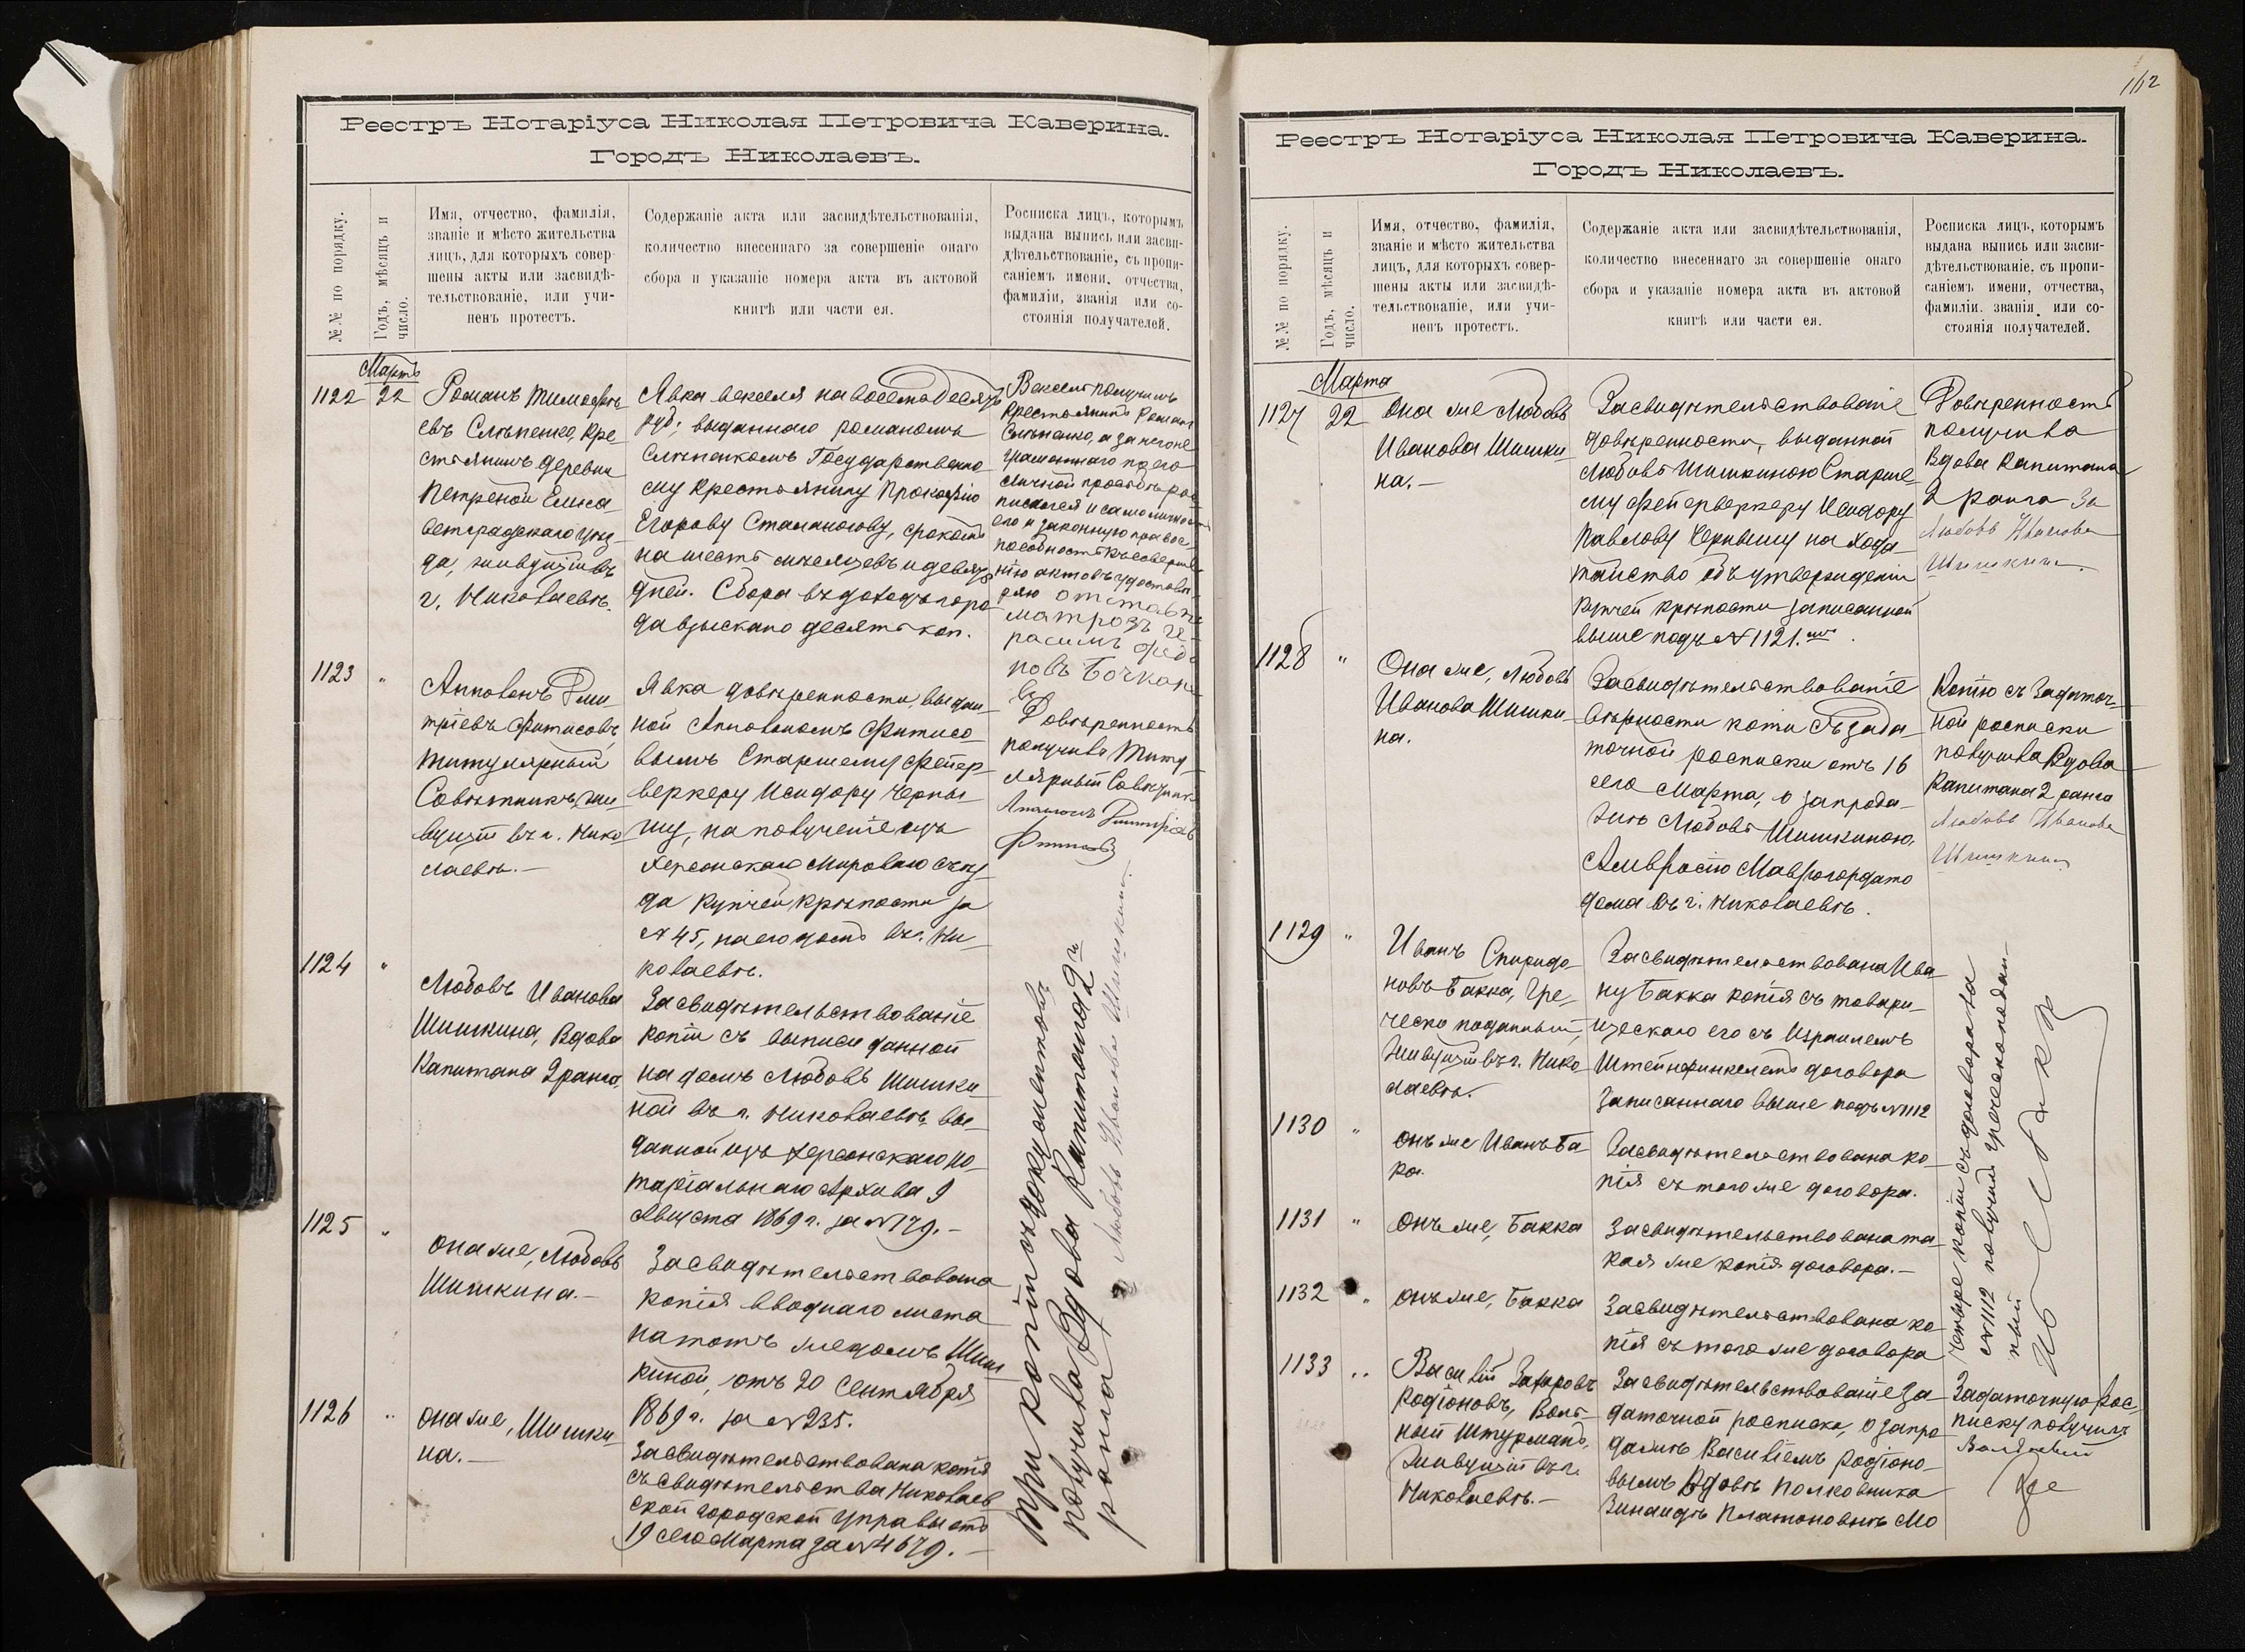 Реестръ Нотаріуса Николая Петровича Каверина.
Городъ Николаевъ.
№№ по порядку.
Годъ, мѣсяцъ и
число.
Имя, отчество, фамилія,
званіе и мѣсто жительства
лицъ, для которыхъ совер-
шены акты или засвидѣ-
тельствованіе, или учи-
ненъ протестъ.
Содержаніе акта или засвидѣтельствованія,
количество внесеннаго за совершеніе онаго
сбора и указаніе номера акта въ актовой
книгѣ или части ея.
Росписка лицъ, которымъ
выдана выпись или засви-
дѣтельствованіе, съ пропи-
саніемъ имени, отчества,
фамиліи, званія или со-
стоянія получателей.
Мартъ
1122
22
Романъ Тимофѣ-
евъ Слѣпенко, кре-
стьянинъ деревни
Петреной Елиса-
ветградскаго уѣз-
да, живущій въ
г. Николаевѣ.
Явка векселя на восемьдесятъ
руб., выданнаго Романомъ
Слѣпенкомъ Государственно-
му крестьянину Прокофію
Егорову Стаматову, срокомъ
на шесть мѣсяцевъ и девять
дней. Сбора въ доходъ горо-
да взыскано десять коп.
Вексель получилъ
Крестьянинъ Романъ
Слѣпенко, а за него не
грамотнаго по его
личной просьбѣ рос-
писался и самоличность
его и законную правос-
пособность къ соверше-
нію актовъ удостовѣ-
ряю отставн
матрозъ Ге-
расимъ Федо
новъ Бочкаре
въ
1123
"
Апполонъ Дми-
тріевъ Фитисовъ,
Титулярный
Совѣтникъ, жи-
вущій въ г. Нико-
лаевѣ.—
Явка довѣренности, выдан-
ной Апполономъ Фитисо-
вымъ Старшему Фейер-
веркеру Исидору Черны-
шу, на полученіе изъ
Херсонскаго Мироваго съѣз-
да купчей крѣпости за
№ 45, на его домъ въ г. Ни-
колаевѣ.
Довѣренность
получилъ Титу-
лярный Совѣтникъ
Аполонъ Дмитріевъ
Фитисовъ
1124
"
Любовь Иванова
Шишкина, Вдова
Капитана 2 ранга.
Засвидѣтельствованіе
копіи съ выписи данной
на домъ Любовь Шишки-
ной въ г. Николаевѣ, вы-
данной изъ Херсонскаго Но-
таріальнаго Архива 9
Августа 1869 г. за № 179.—
1125
"
Она же, Любовь
Шишкина.—
Засвидѣтельствована
копія вводнаго листа
на тотъ же домъ Шиш-
киной, отъ 20 Сентября
1869 г. за № 235.
1126
"
Она же, Шишки-
на.—
Засвидѣтельствована копія
съ свидѣтельства Николаев-
ской городской Управы отъ
19 сего Марта за № 4679.—
Три копіи съ документовъ
получила Вдова Капитана 2го
ранга
Любовь Иванова Шишкина.
162
Реестръ Нотаріуса Николая Петровича Каверина.
Городъ Николаевъ.
№№ по порядку.
Годъ, мѣсяцъ и
число.
Имя, отчество, фамилія,
званіе и мѣсто жительства
лицъ, для которыхъ совер-
шены акты или засвидѣ-
тельствованіе, или учи-
ненъ протестъ.
Содержаніе акта или засвидѣтельствованія,
количество внесеннаго за совершеніе онаго
сбора и указаніе номера акта въ актовой
книгѣ или части ея.
Росписка лицъ, которымъ
выдана выпись или засви-
дѣтельствованіе, съ пропи-
саніемъ имени, отчества,
фамиліи, званія или со-
стоянія получателей.
Марта
1127
22
Она же Любовь
Иванова Шишки-
на.—
Засвидѣтельствованіе
довѣренности, выданной
Любовь Шишкиною Старше-
му Фейерверкеру Исидору
Павлову Чернышу на хода-
тайство объ утвержденіи
купчей крѣпости записанной
выше подъ № 1121.мъ.
Довѣренность
получила
Вдова Капитана
2 ранга
Любовь Иванова
Шишкина.
1128
"
Она же, Любовь
Иванова Шишки-
на.
Засвидѣтельствованіе
вѣрности копіи съ зада-
точной росписки отъ 16
сего Марта, о запрода-
жѣ Любовь Шишкиною,
Амвросію Маврогордато
дома въ г. Николаевѣ.
Копію съ Задаточ-
ной росписки
получила Вдова
Капитана 2 ранга
Любовь Иванова
Шишкина
1129
"
Иванъ Спиридо-
новъ Бакка, Гре-
ческо подданный,
живущій въ г. Нико-
лаевѣ.
Засвидѣтельствована Ива-
ну Бакка копія съ товари-
щескаго его съ Израилемъ
Штейнфинкелемъ договора
записаннаго выше подъ № 1112
1130
"
Онъ же Иванъ Ба-
ка.
Засвидѣтельствована ко-
пія съ того же договора.
1131
"
Онъ же, Бакка
Засвидѣтельствована та-
кая же копія договора.—
1132
"
Онъ же, Бакка
Засвидѣтельствована ко-
пія съ того же договора
Четыре копіи съ договора на
№ 1112 получилъ Греческоподдан-
ный
1133
"
Василій Захаровъ
Родіоновъ, Воль-
ный Штурманъ,
живущій въ г.
Николаевѣ.—
Засвидѣтельствованіе за-
даточной росписки, о запро-
дажѣ Василіемъ Родіоно-
вымъ Вдовѣ Полковника
Зинаидѣ Платоновнѣ Мо
Задаточную рос-
писку получилъ
Вольный